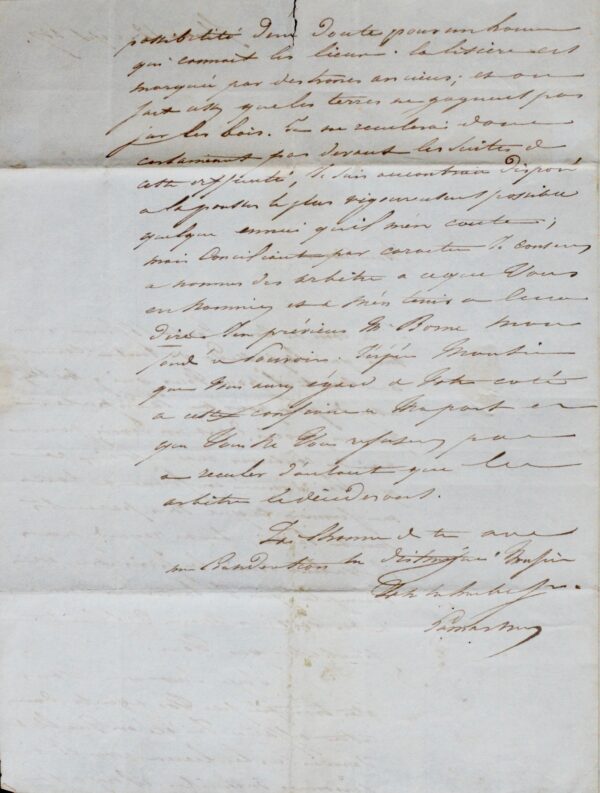 possibilité d'un doute pour un homme
qui connait les lieux. la lisière est
marquée par des bornes anciens; et on
sait assez que les terres ne gagnent pas
sur les bois. Je ne reculerai donc
certainement pas devant les suites de
cette difficulté, Je suis au contraire disposé
a la pousser le plus vigoureusement possible
quelque ennui qu'il m'en coute;
mais Conciliant par caractère Je consens
a nommer des arbitres a ce que Vous
en nommiez et a m'en tenir a leur
dire. J'en préviens Mr Borne mon
fondé de pouvoir. J'espère Monsieur
que Vous aurez égard a Votre coté
a cette confiance de ma part et
que Vous ne Vous refuserez pas
a reculer d'autant que les
arbitres le décideront.
J'ai l'honneur d'être avec
une Consideration très distinguée Monsieur
Votre très humble Sr.